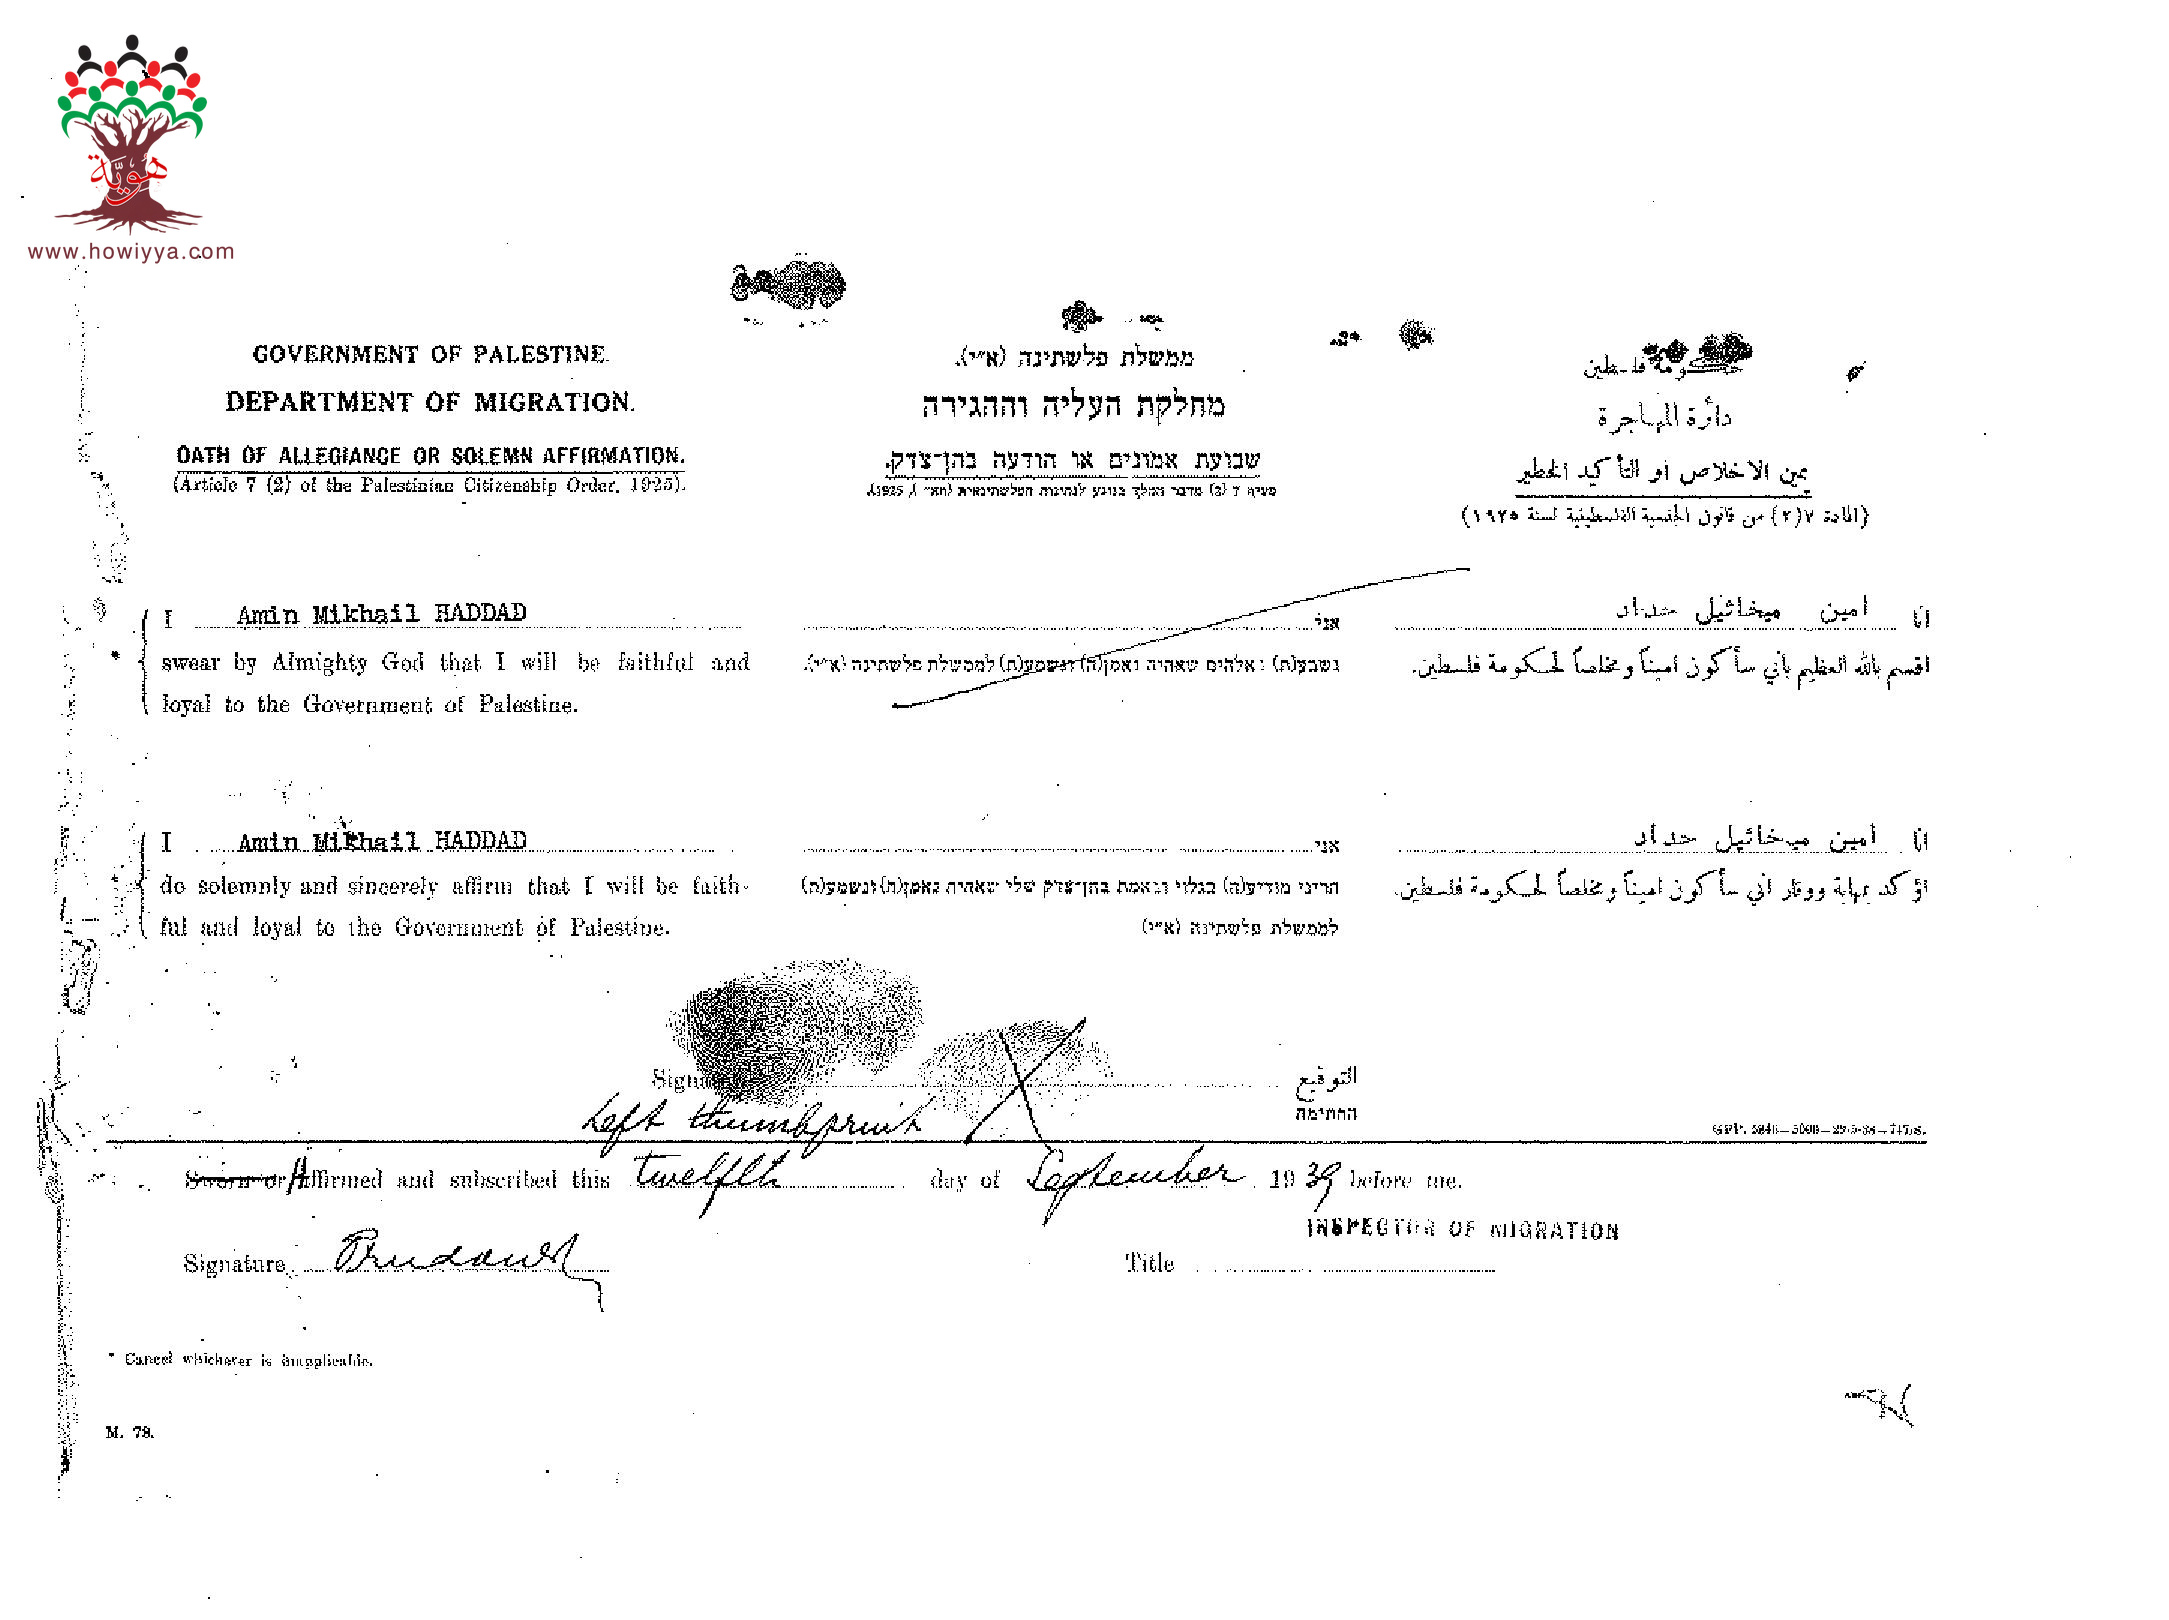 هويّة
www.howiyya.com
GOVERNMENT OF PALESTINE.
DEPARTMENT OF MIGRATION.
OATH OF ALLEGIANCE OR SOLEMN AFFIRMATION.
(Article 7 (2) of the Palestinian Citizenship Order, 1925).
ממשלת פלשתינה (א״י).
מחלקת העליה וההגירה
שבועת אמונים או הודעה בהן־צדק.
סעיף 7 (2) מדבר המלך בנוגע לנתינות הפלשתינאית 1925
حكومة فلسطين
دائرة المهاجرة
يمين الاخلاص او التأكيد الخطير
(المادة ٧(٢) من قانون الجنسية الفلسطينية لسنة ١٩٢٥)
I Amin Mikhail HADDAD
* swear by Almighty God that I will be faithful and
loyal to the Government of Palestine.
אני
נשבע(ת) באלהים שאהיה נאמן(ה) ונשמע(ת) לממשלת פלשתינה (א״י).
انا امين ميخائيل حداد
اقسم بالله العظيم بأني سأكون اميناً ومخلصاً لحكومة فلسطين.
I Amin Mikhail HADDAD
* do solemnly and sincerely affirm that I will be faith-
ful and loyal to the Government of Palestine.
אני
הריני מודיע(ה) בגלוי ובאמת בהן־צדק שלי שאהיה נאמן(ה) ונשמע(ת)
לממשלת פלשתינה (א״י)
انا امين ميخائيل حداد
اؤكد بمهابة ووقار اني سأكون اميناً ومخلصاً لحكومة فلسطين.
Signature
التوقيع
החתימה
Left thumbprint
Sworn or Affirmed and subscribed this twelfth day of September 1939 before me.
INSPECTOR OF MIGRATION
Signature
Title
* Cancel whichever is inapplicable.
M. 78.